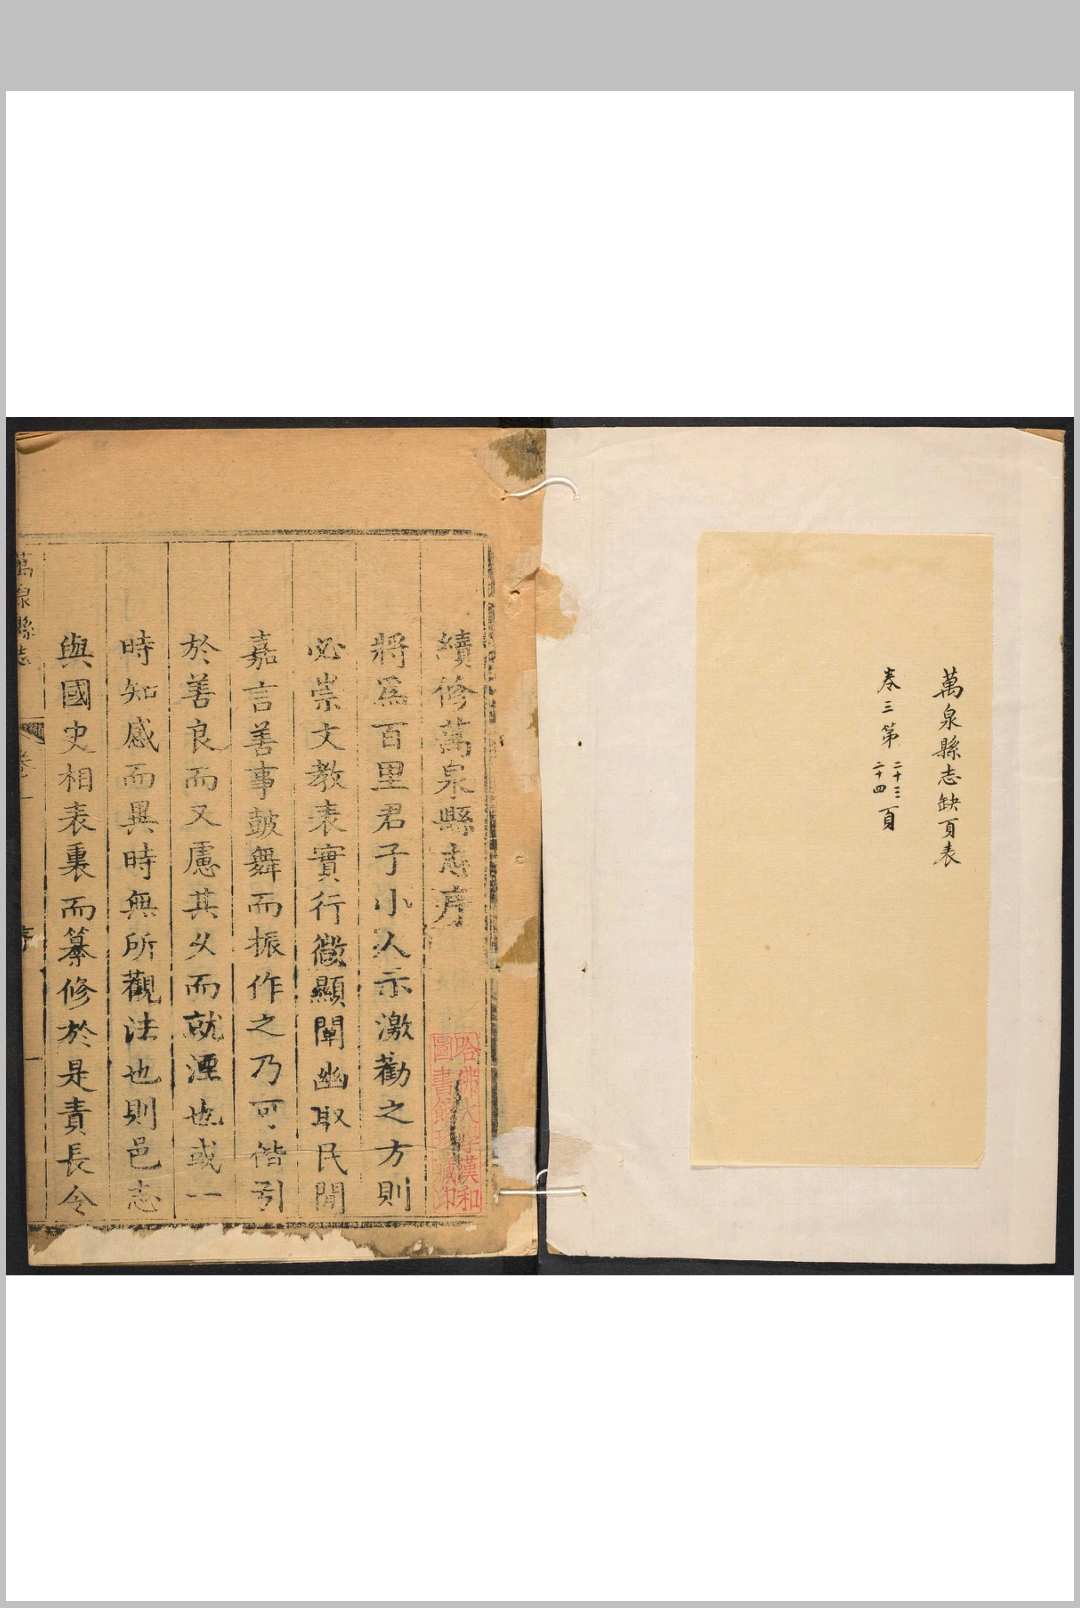 萬泉縣志缺頁表
卷三第二十三二十四頁
續修萬泉縣志序
將爲百里君子小人示激勸之方則
必崇文教表實行徵顯闡幽取民間
嘉言善事鼓舞而振作之乃可偕引
於善良而又慮其久而就湮也或一
時知感而異時無所觀法也則邑志
與國史相表裏而纂修於是責長令
萬泉縣志
卷一
序
一
哈佛大學漢和
圖書館珍藏印